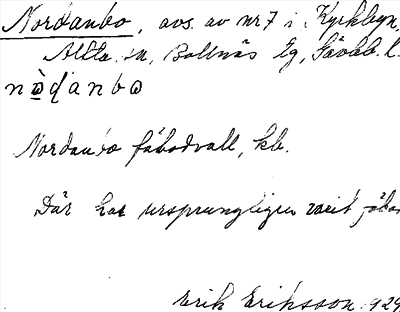 Nordanbo, avs. av nr 7 i Kyrkbyn,
Alfta sn, Bollnäs tg, Gävleb. l.
Nordanbo fäbodvall, kb.
Där har ursprungligen varit
Erik Eriksson 929